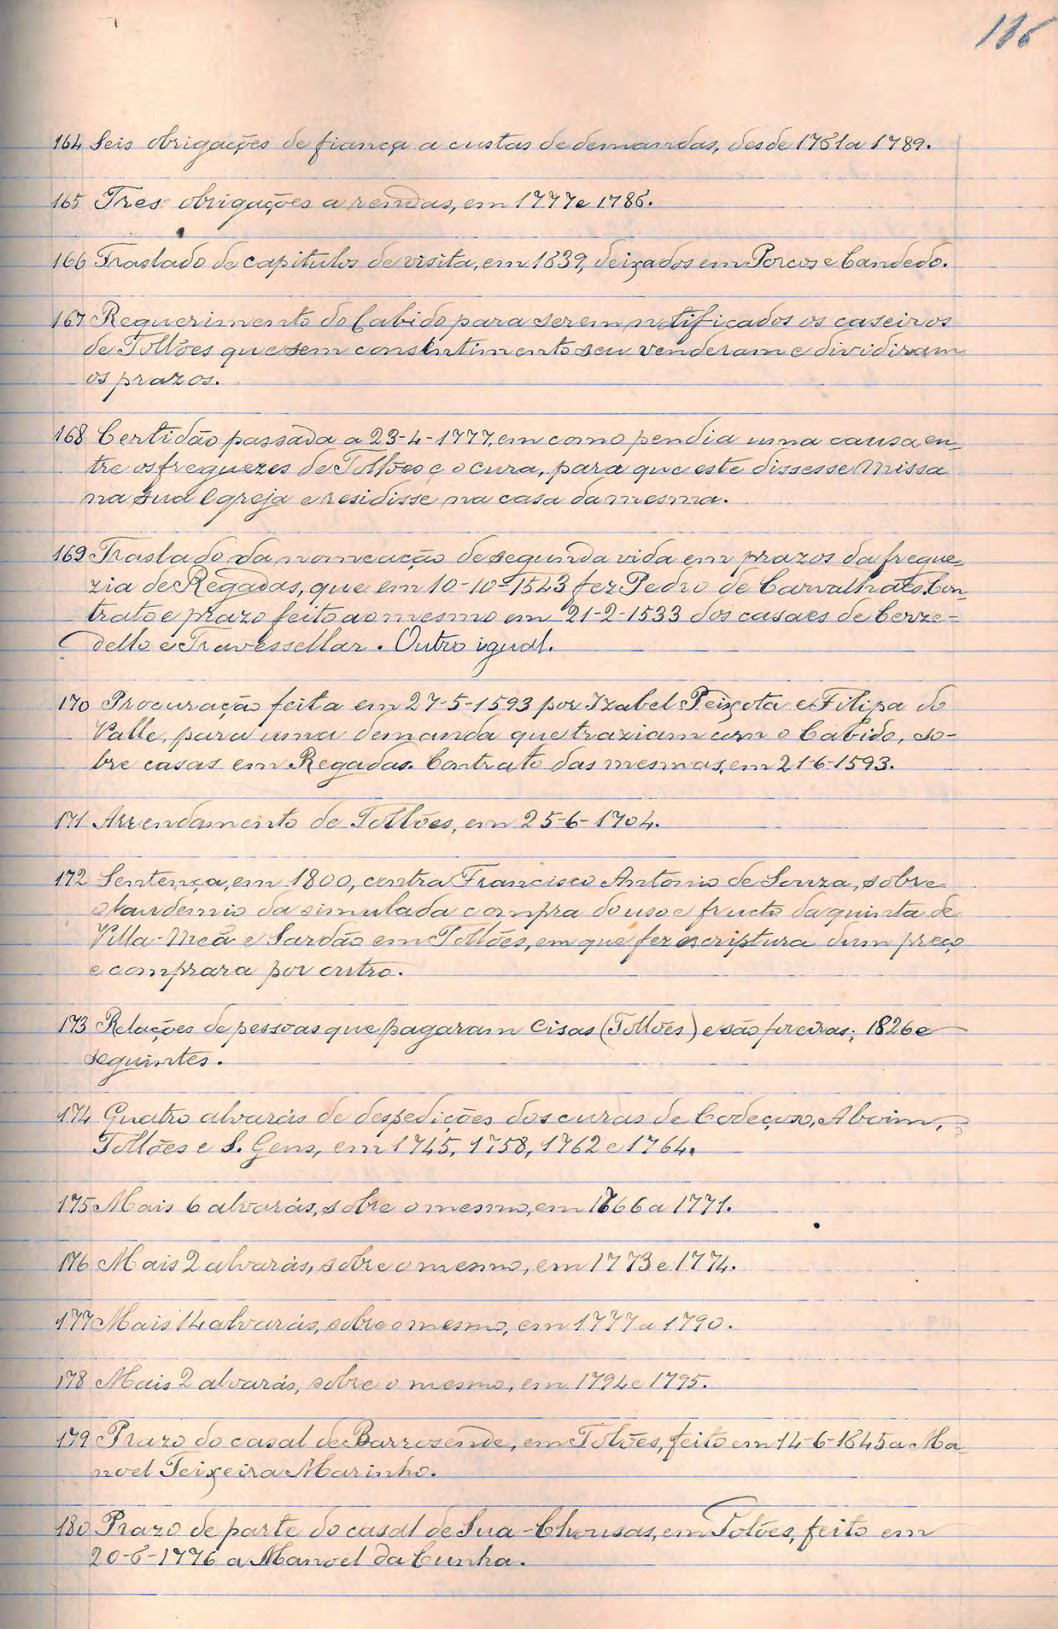 116
164 Seis obrigações de fiança a custas de demandas, desde 1761 a 1789.
165 Tres obrigações a rendas, em 1777 e 1786.
166 Traslado de capitulos de visita, em 1839, deixados em Porcos e Candedo.
167 Requerimento do Cabido para serem notificados os caseiros
de Tollões que sem consentimento seu venderam e dividiram
os prazos.
168 Certidão passada a 23-4-1777, em como pendia uma causa en-
tre os freguezes de Tollões e o cura, para que este dissesse Missa
na sua Egreja e residisse na casa da mesma.
169 Traslado da nomeação de segunda vida em prazos da fregue-
zia de Regadas, que em 10-10-1543 fez Pedro de Carvalhaes. Con
trato e prazo feito ao mesmo em 21-2-1533 dos casaes de Cerze-
dello e Travessellar. Outro igual.
170 Procuração feita em 27-5-1593 por Izabel Peixota e Filipa do
Valle, para uma demanda que traziam com o Cabido, so-
bre casas em Regadas. Contrato das mesmas, em 21-6-1593.
171 Arrendamento de Tollões, em 25-6-1704.
172 Sentença, em 1800, contra Francisco Antonio de Souza, sobre
o laudemio da simulada compra do uso e fructo da quinta de
Villa-Meã e Sardão em Tollões, em que fez escriptura dum preço
e comprara por outro.
173 Relações de pessoas que pagaram Cisas (Tollões) e são foreiras; 1826 e
seguintes.
174 Quatro alvarás de despedições dos curas de Codeçoso, Aboim,
Tollões e S. Gens, em 1745, 1758, 1762 e 1764.
175 Mais 6 alvarás, sobre o mesmo, em 1766 a 1771.
176 Mais 2 alvarás, sobre o mesmo, em 1773 e 1774.
177 Mais 14 alvarás, sobre o mesmo, em 1777 a 1790.
178 Mais 2 alvarás, sobre o mesmo, em 1794 e 1795.
179 Prazo do casal de Barrosende, em Tolões, feito em 14-6-1845 a Ma
noel Teixeira Marinho.
180 Prazo de parte do casal de Sua-Chousas, em Tolões, feito em
20-6-1776 a Manoel da Cunha.